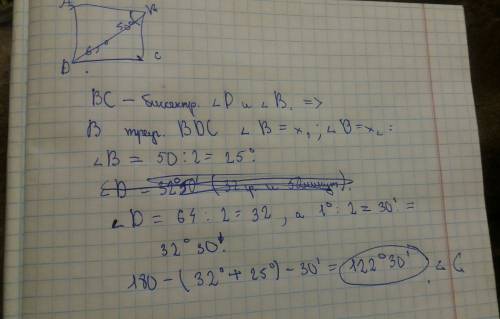 A B
50°
65°
D C
BC – биссектр. ∠D и ∠B. =>
В треуг. BDC ∠B = x₁; ∠D = x₂:
∠B = 50 : 2 = 25°
∠D = 64 : 2 = 32, а 1° : 2 = 30' =
32° 30'.
180 – (32° + 25°) – 30' = 122°30' ∠C